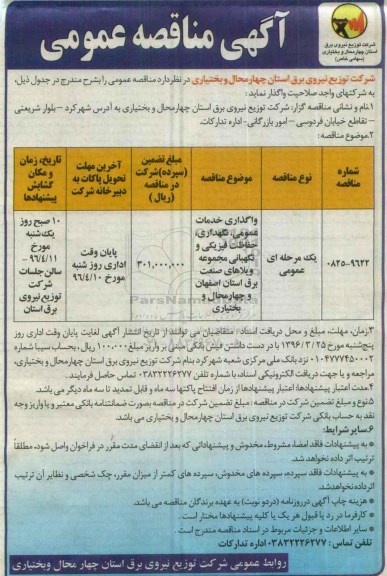 آگهی مناقصه عمومی
شرکت توزیع نیروی برق
استان چهارمحال و بختیاری
(سهامی خاص)
شرکت توزیع نیروی برق استان چهارمحال و بختیاری در نظر دارد مناقصه عمومی را بشرح مندرج در جدول ذیل،
به شرکتهای واجد صلاحیت واگذار نماید:
۱.نام و نشانی مناقصه گزار: شرکت توزیع نیروی برق استان چهارمحال و بختیاری به آدرس شهرکرد - بلوار شریعتی
- تقاطع خیابان فردوسی - امور بازرگانی- اداره تدارکات.
۲.موضوع مناقصه:
شماره مناقصه
نوع مناقصه
موضوع مناقصه
مبلغ تضمین (سپرده) شرکت در مناقصه (ریال)
آخرین مهلت تحویل پاکات به دبیرخانه شرکت
تاریخ، زمان و مکان گشایش پیشنهادها
۰۸۲۵-۹۶۲۲
یک مرحله ای عمومی
واگذاری خدمات عمومی، نگهداری، حفاظت فیزیکی و نگهبانی مجموعه ویلاهای صنعت برق استان اصفهان و چهارمحال و بختیاری
۳۰۱,۰۰۰,۰۰۰
پایان وقت اداری روز شنبه مورخ ۹۶/۴/۱۰
۱۰ صبح روز یک شنبه مورخ ۹۶/۴/۱۱ - سالن جلسات شرکت توزیع نیروی برق استان
ParsNamadData
۳.زمان، مهلت، مبلغ و محل دریافت اسناد: متقاضیان می توانند از تاریخ انتشار آگهی لغایت پایان وقت اداری روز
پنج شنبه مورخ ۱۳۹۶/۳/۲۵ با در دست داشتن فیش بانکی مبنی بر واریز مبلغ ۱۰۰,۰۰۰ ریال، بحساب سیبا شماره
۰۱۰۴۷۷۷۴۵۰۰۰۲ نزد بانک ملی مرکزی شعبه شهرکرد بنام شرکت توزیع نیروی برق استان چهارمحال و بختیاری،
مراجعه و یا جهت دریافت الکترونیکی اسناد، با شماره تلفن ۰۳۸۳۲۲۲۶۲۷۷ تماس حاصل فرمایند.
۴.مدت اعتبار پیشنهادها: اعتبار پیشنهادها از زمان افتتاح پاکتها سه ماه و قابل تمدید تا سه ماه دیگر می باشد.
۵.نوع و مبلغ تضمین شرکت در مناقصه: مبلغ تضمین شرکت در مناقصه بصورت ضمانتنامه بانکی معتبر و یا واریز وجه
نقد به حساب بانکی شرکت توزیع نیروی برق استان چهارمحال و بختیاری می باشد.
۶.سایر شرایط:
* به پیشنهادات فاقد امضا، مشروط، مخدوش و پیشنهاداتی که بعد از انقضای مدت مقرر در فراخوان واصل شود، مطلقاً
ترتیب اثر داده نخواهد شد.
* به پیشنهادات فاقد سپرده، سپرده های مخدوش، سپرده های کمتر از میزان مقرر، چک شخصی و نظایر آن ترتیب
اثر داده نخواهد شد.
* هزینه چاپ آگهی در روزنامه (در دو نوبت) به عهده برندگان مناقصه می باشد.
* کارفرما در رد یا قبول هر یک یا کلیه پیشنهادها مختار است.
* سایر اطلاعات و جزئیات مربوط در اسناد مناقصه مندرج است.
تلفن تماس: ۰۳۸۳۲۲۲۶۲۷۷ اداره تدارکات
روابط عمومی شرکت توزیع نیروی برق استان چهار محال وبختیاری